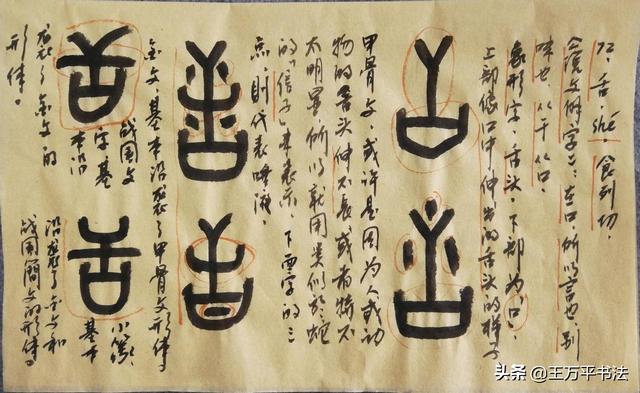 72,舌,shé,食列切。
《说文解字》:在口,所以言也,别
味也。从干从口。
象形字,舌头,下部为"口",
上部像口中伸出的舌头的样子。
甲骨文,或许是因为人或动
物的舌头伸不长,或者特不
太明显,所以就用类似於蛇
的"信子"来表示,下面字的三
点,则代表唾液。
金文,基本沿袭了甲骨文形体。
战国文
字基
本沿
袭了金文的
形体。
小篆,
基本
沿袭了金文和
战国简文的形体。
头条 @王万平书法